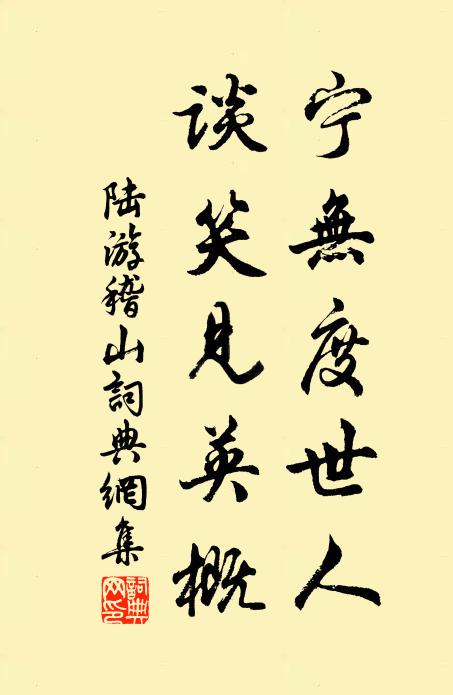 宁無度世人
谈笑見英概
陆游稽山詞典網集
詞典网印